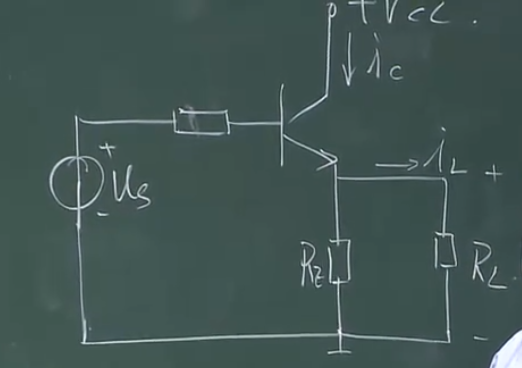 +VCC.
ic
+
us
-
iL +
RE
RL
-